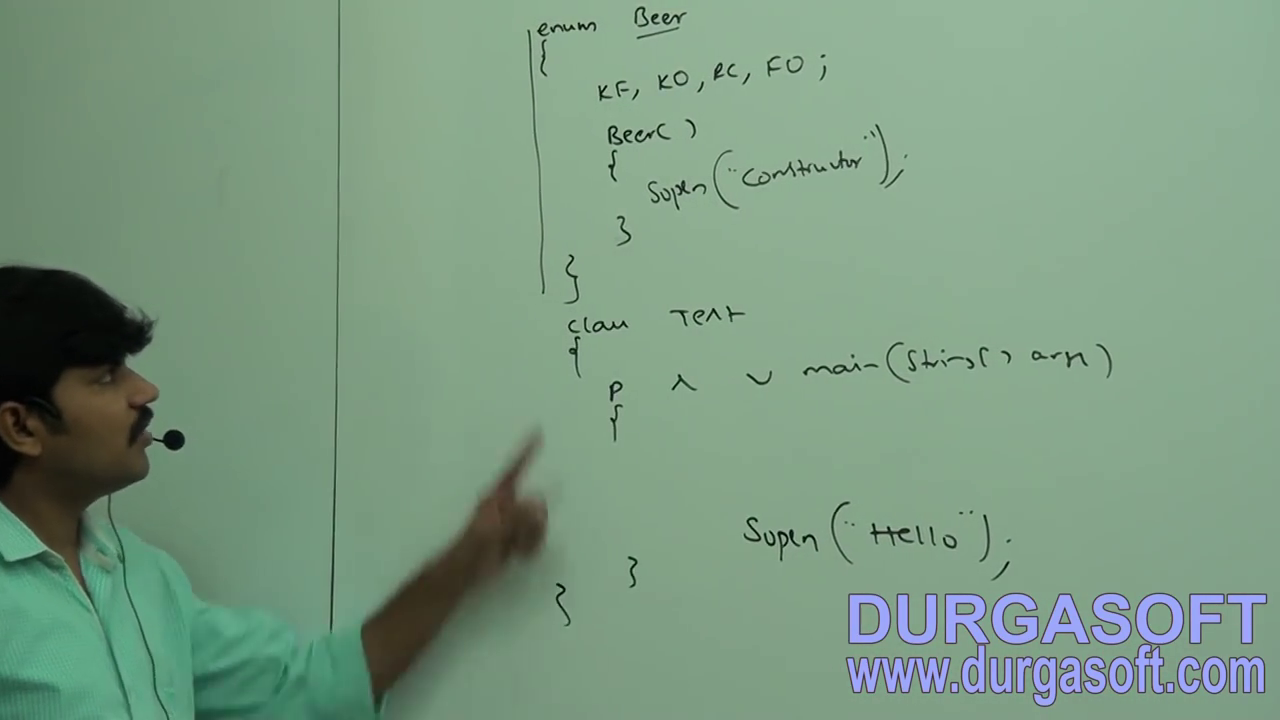 enum Beer
{
KF, KO, RC, FO ;
Beer( )
{
Sopln("Constructor");
}
}
class Test
{
p s v main(String[] args)
{
Sopln("Hello");
}
}
DURGASOFT
www.durgasoft.com